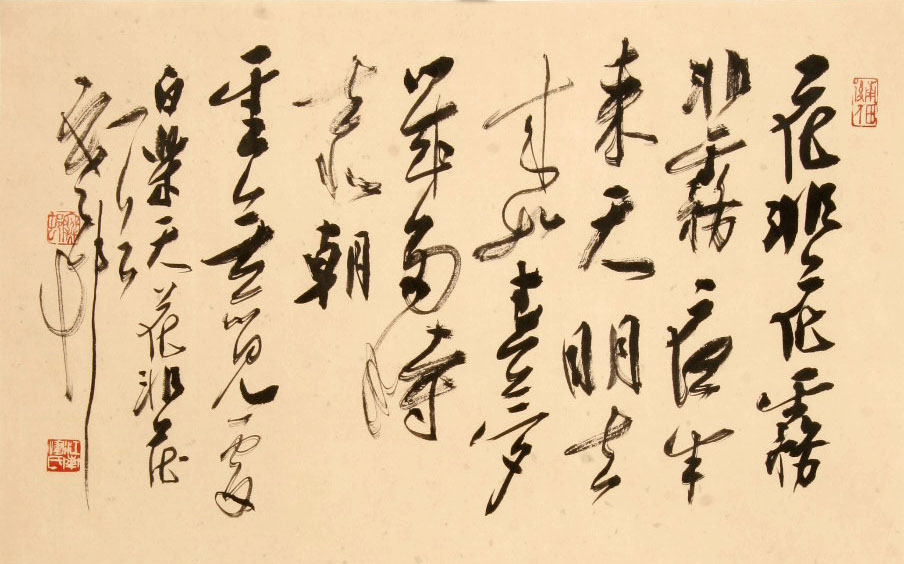 花非花霧
非霧夜半
来天明去
来如春夢
幾多時
去似朝
雲無覓處
白樂天花非花